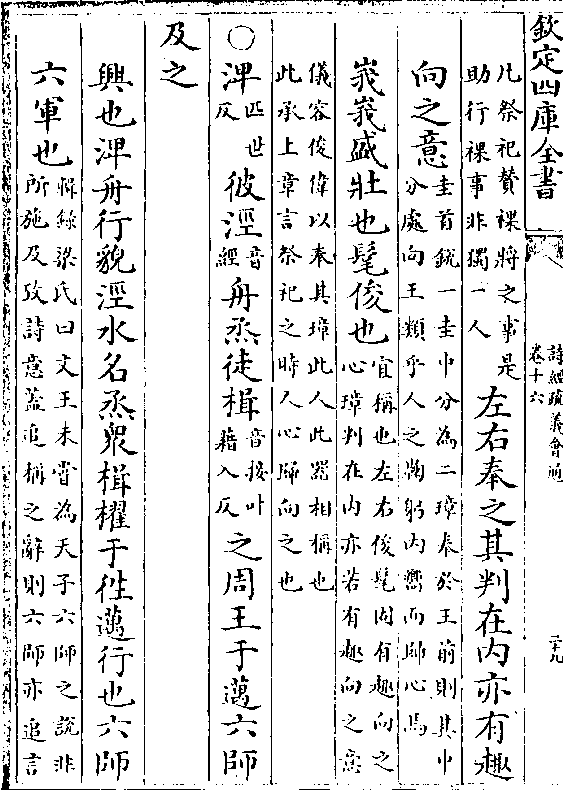 欽定四庫全書
詩經疏義會通
卷十六
二十九
凡祭祀賛祼將之事是
助行祼事非獨一人
左右奉之其判在内亦有趣
向之意
圭首銳一圭中分為二璋奉於王前則其中
分處向王類乎人之鞠躬内嚮而歸心焉
峩峩盛壯也髦俊也
宜稱也左右俊髦固有趣向之
心璋判在内亦若有趣向之意
儀容俊偉以奉其璋此人此器相稱也
此承上章言祭祀之時人心歸向之也
○淠
匹世
反
彼涇
音
經
舟烝徒楫
音接叶
藉入反
之周王于邁六師
及之
興也淠舟行貌涇水名烝衆楫櫂于徃邁行也六師
六軍也
輯錄梁氏曰文王未嘗為天子六師之説非
所施及攷詩意蓋追稱之辭則六師亦追言